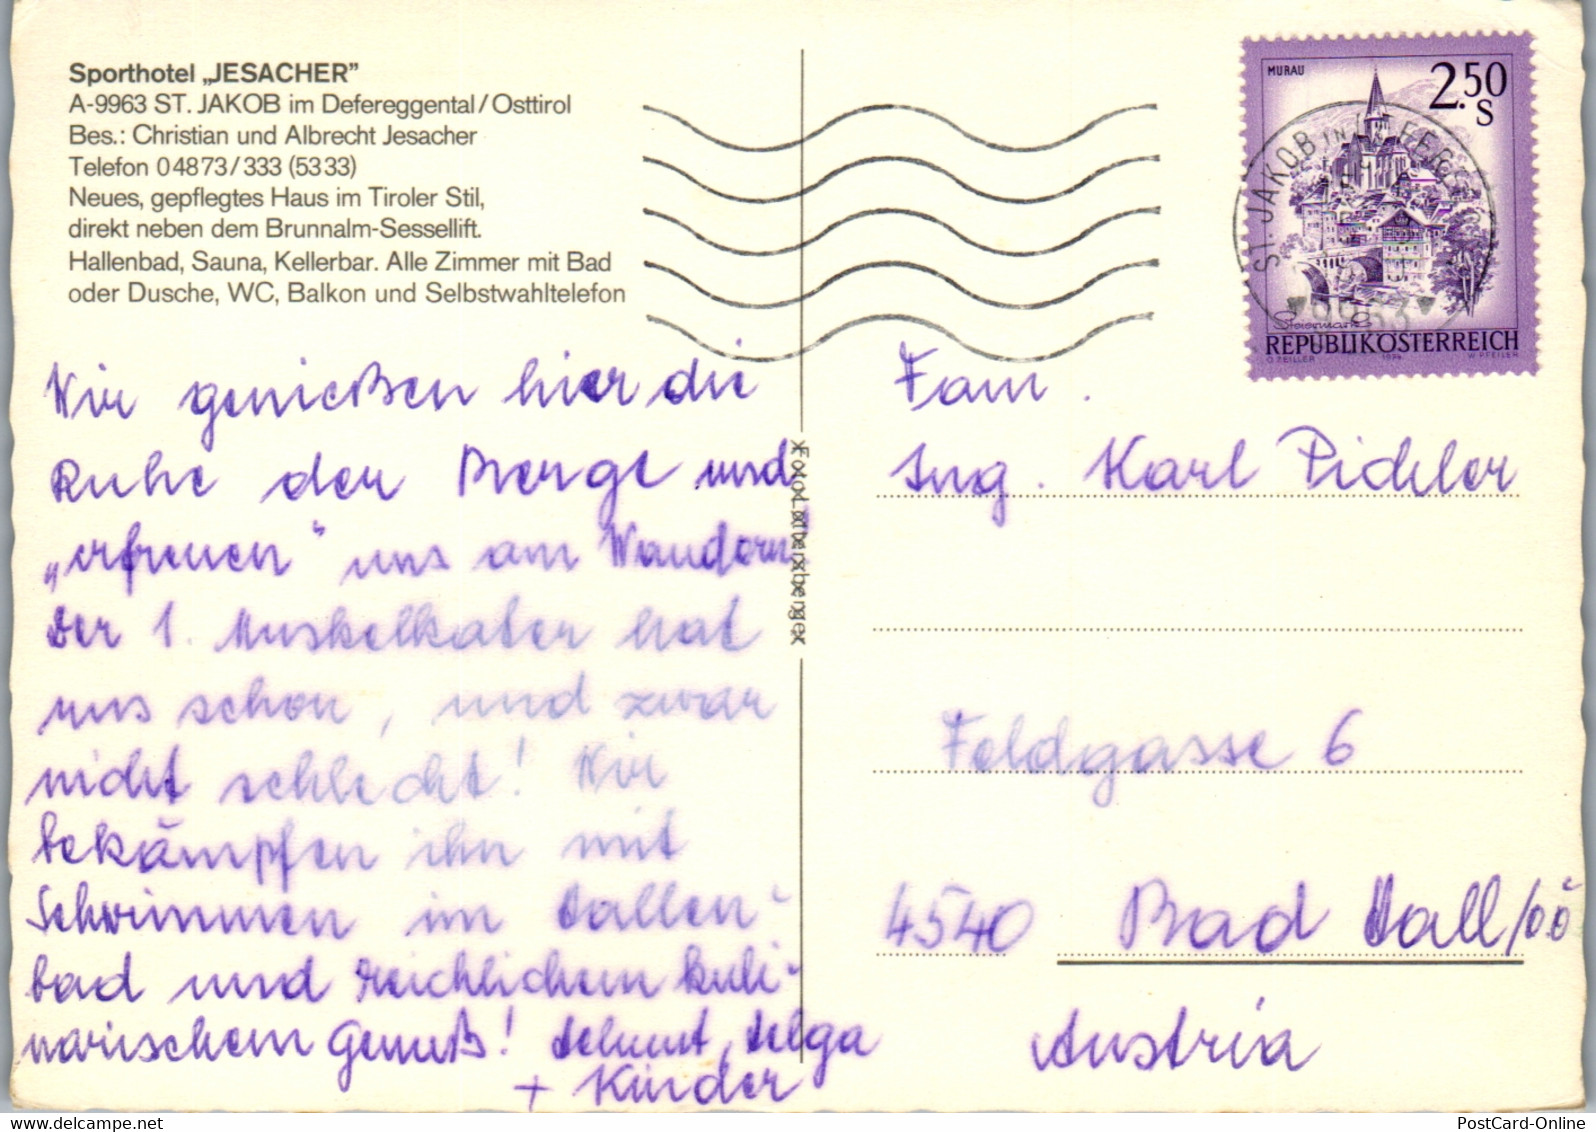 Sporthotel „JESACHER”
A-9963 ST. JAKOB im Defereggental/Osttirol
Bes.: Christian und Albrecht Jesacher
Telefon 04873/333 (5333)
Neues, gepflegtes Haus im Tiroler Stil,
direkt neben dem Brunnalm-Sessellift.
Hallenbad, Sauna, Kellerbar. Alle Zimmer mit Bad
oder Dusche, WC, Balkon und Selbstwahltelefon
Wir genießen hier die
Ruhe der Berge und
„erfreuen“ uns am Wandern
Der 1. Muskelkater hat
uns schon, und zwar
nicht schlecht! Wir
bekämpfen ihn mit
Schwimmen im Hallen-
bad und reichlichem kuli-
narischem Genuß! Helmut, Helga
+ Kinder
Foto Lottersberger
MURAU
2.50
S
ST. JAKOB IN
9963
Steiermark
REPUBLIK ÖSTERREICH
O. ZEILLER 1974 W. PFEILER
Fam.
Ing. Karl Pichler
Feldgasse 6
4540 Bad Hall/OÖ
Austria
PostCard-Online